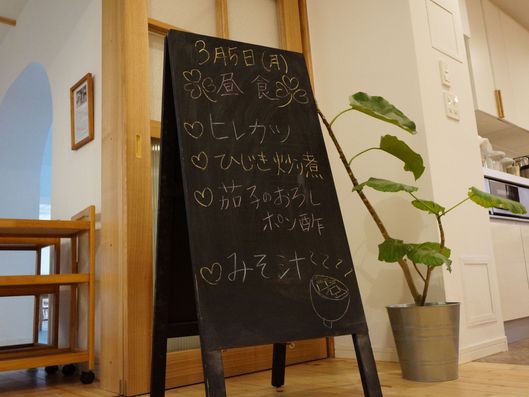 3月5日(月)
昼食
ヒレカツ
ひじき炒り煮
茄子のおろし
ポン酢
みそ汁